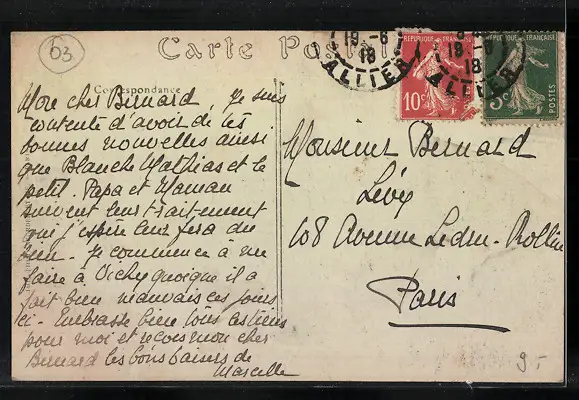 03
Carte Postale
Correspondance
19 -6
18
ALLIER
REPUBLIQUE FRANÇAISE
10c
19 -
18
ALLIER
FRANÇAISE
5c
POSTES
Mon cher Bernard, Je suis
contente d'avoir de tes
bonnes nouvelles ainsi
que Blanche Mathias et le
petit. Papa et Maman
suivent leur traitement
qui j'espère leur fera du
bien. Je commence à me
faire à Vichy quoique il a
fait bien mauvais ces jours
ci. Embrasse bien tous les tiens
pour moi et reçois mon cher
Bernard les bons baisers de
Marcelle
Monsieur Bernard
Lévy
108 Avenue Ledru-Rollin
Paris
9.-